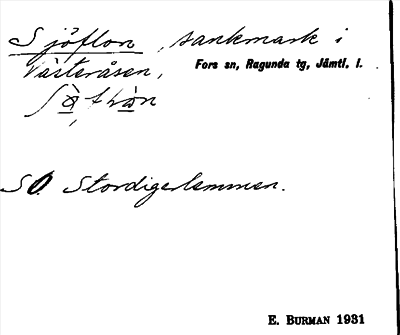 Sjöflon, sankmark i
Västeråsen, Fors sn, Ragunda tg, Jämtl. l.
SO Stordigerlemmen.
E. BURMAN 1931